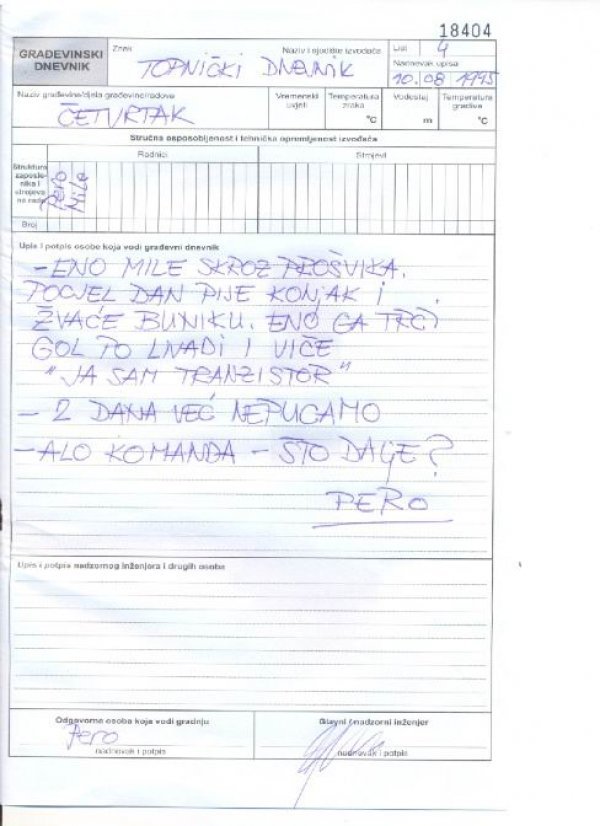 18404
GRAĐEVINSKI DNEVNIK
Znak
Naziv i sjedište izvođača
TOPNIČKI DNEVNIK
List 4
Nadnevak upisa
10.08 1995
Naziv građevine/djela građevine/radova
ČETVRTAK
Vremenski uvjeti
Temperatura zraka
°C
Vodostaj
m
Temperatura gradiva
°C
Stručna osposobljenost i tehnička opremljenost izvođača
Struktura zaposlenika i strojeva na radu
Radnici
Strojevi
Pero
Mile
Broj
Upis i potpis osobe koja vodi građevni dnevnik
- ENO MILE SKROZ PROŠVIKA.
POCJEL DAN PIJE KONJAK I
ŽVAĆE BUNIKU. ENO GA TRČI
GOL PO LIVADI I VIČE
"JA SAM TRANZISTOR"
- 2 DANA VEĆ NEPUCAMO
- ALO KOMANDA - ŠTO DALJE?
PERO
Upis i potpis nadzornog inženjera i drugih osoba
Odgovorna osoba koja vodi gradnju
Pero
nadnevak i potpis
Glavni nadzorni inženjer
nadnevak i potpis